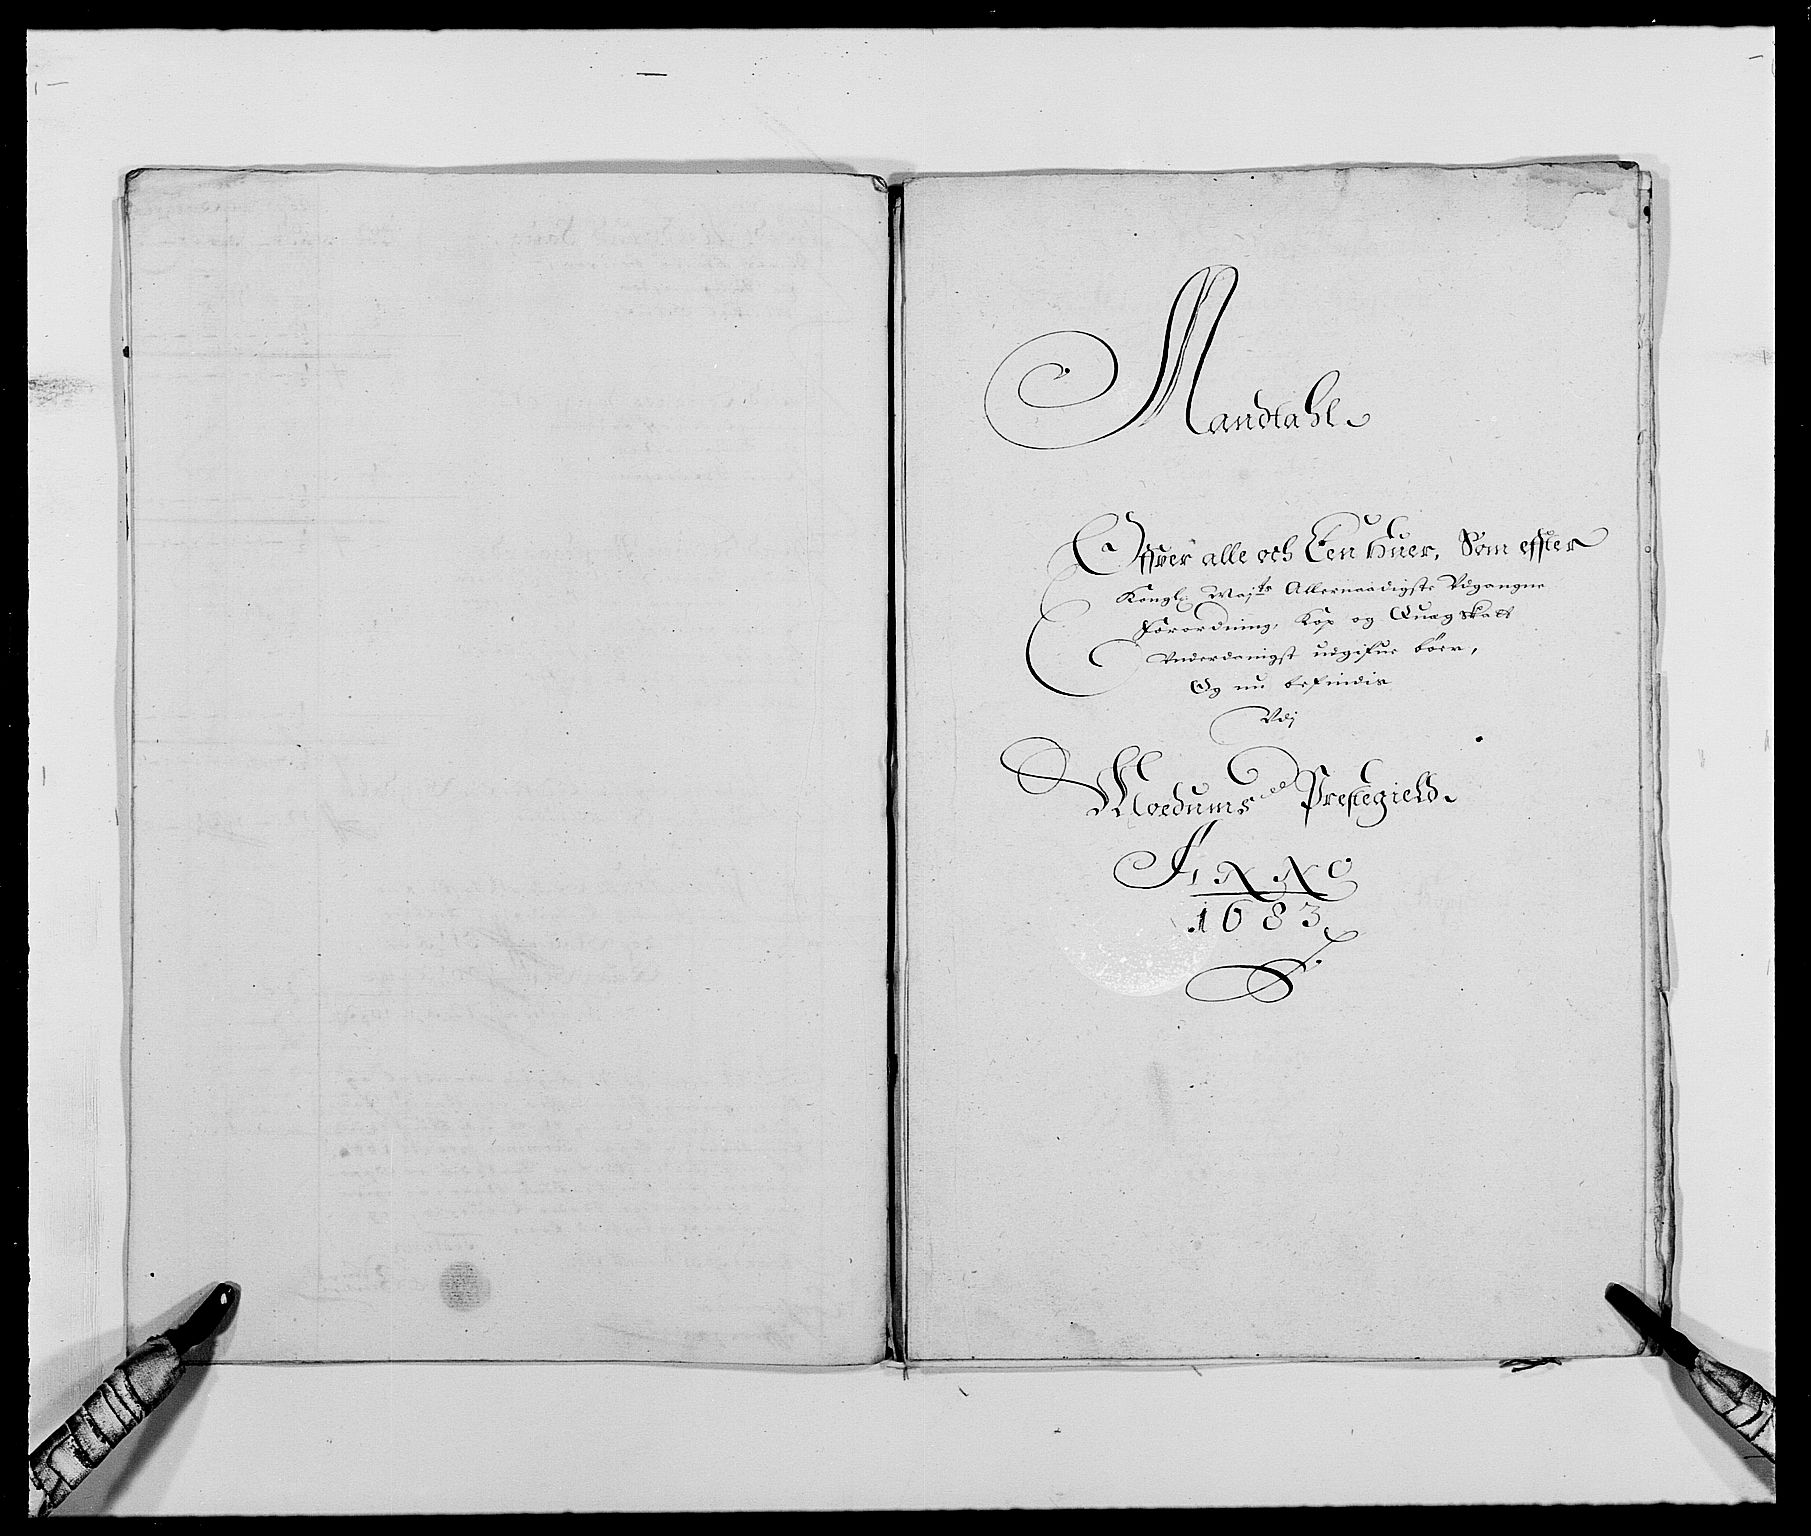 Mandtahl
Offver alle och Een huer, Som effter
Kongl: Maj:ts Allernaadigste Vdgangne
Forordning, Kop og Quæg skatt
Vnderdanigst udgifue bøer,
Og nu befindis
Vdj
Moedums Prestegield
ANNO
1683